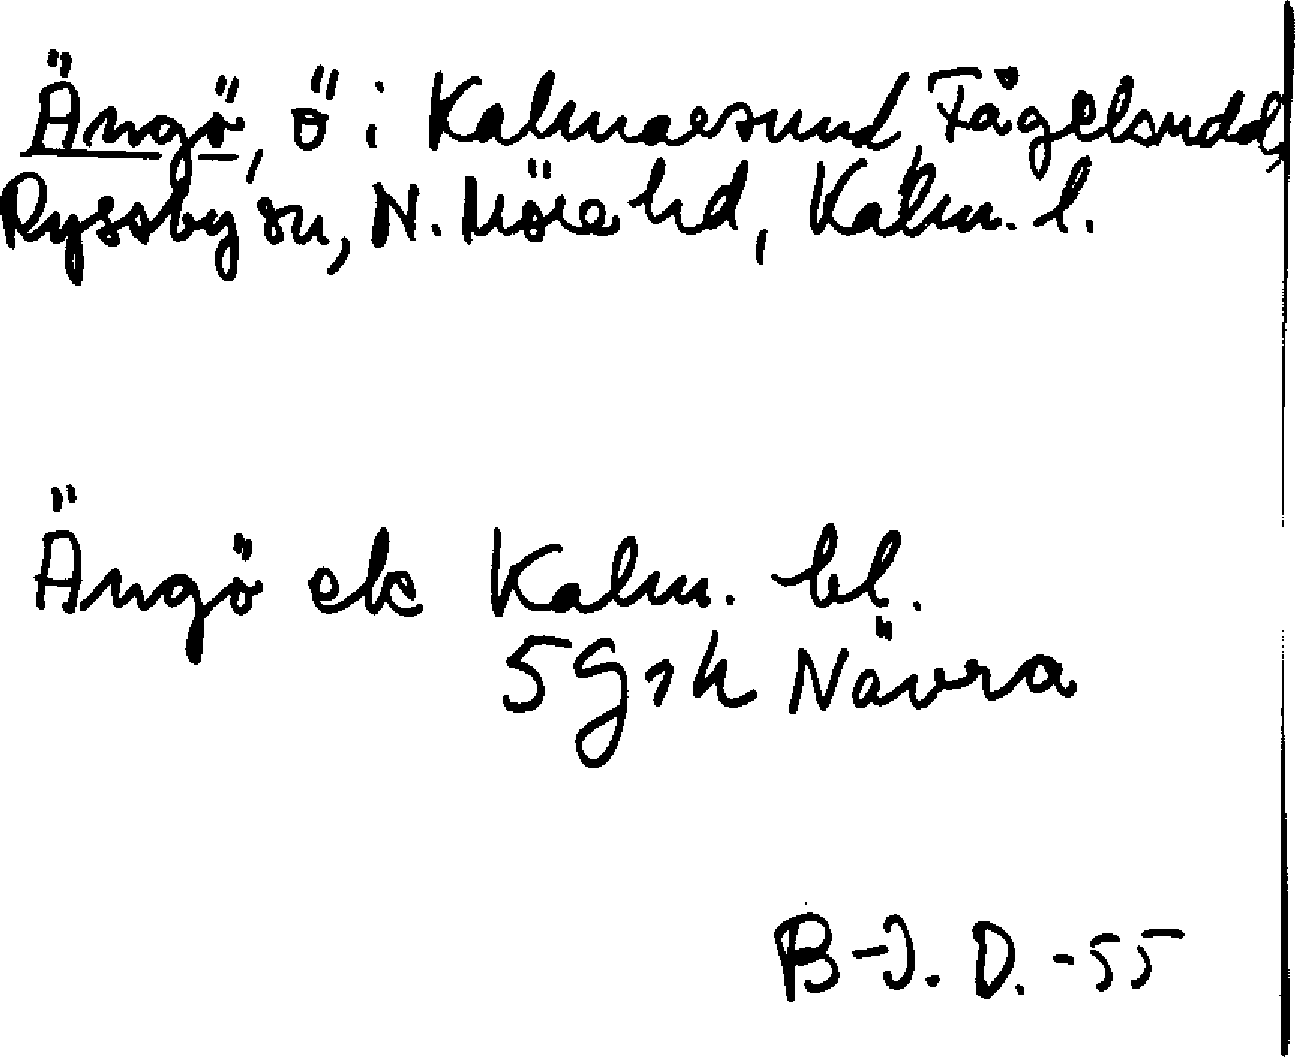 Ängö, ö i Kalmarsund, Fågelsudd,
Ryssby sn, N. Möre hd, Kalm. l.
Ängö ek Kalm. bl.
5 G9h Nävra
B-J. D. -55